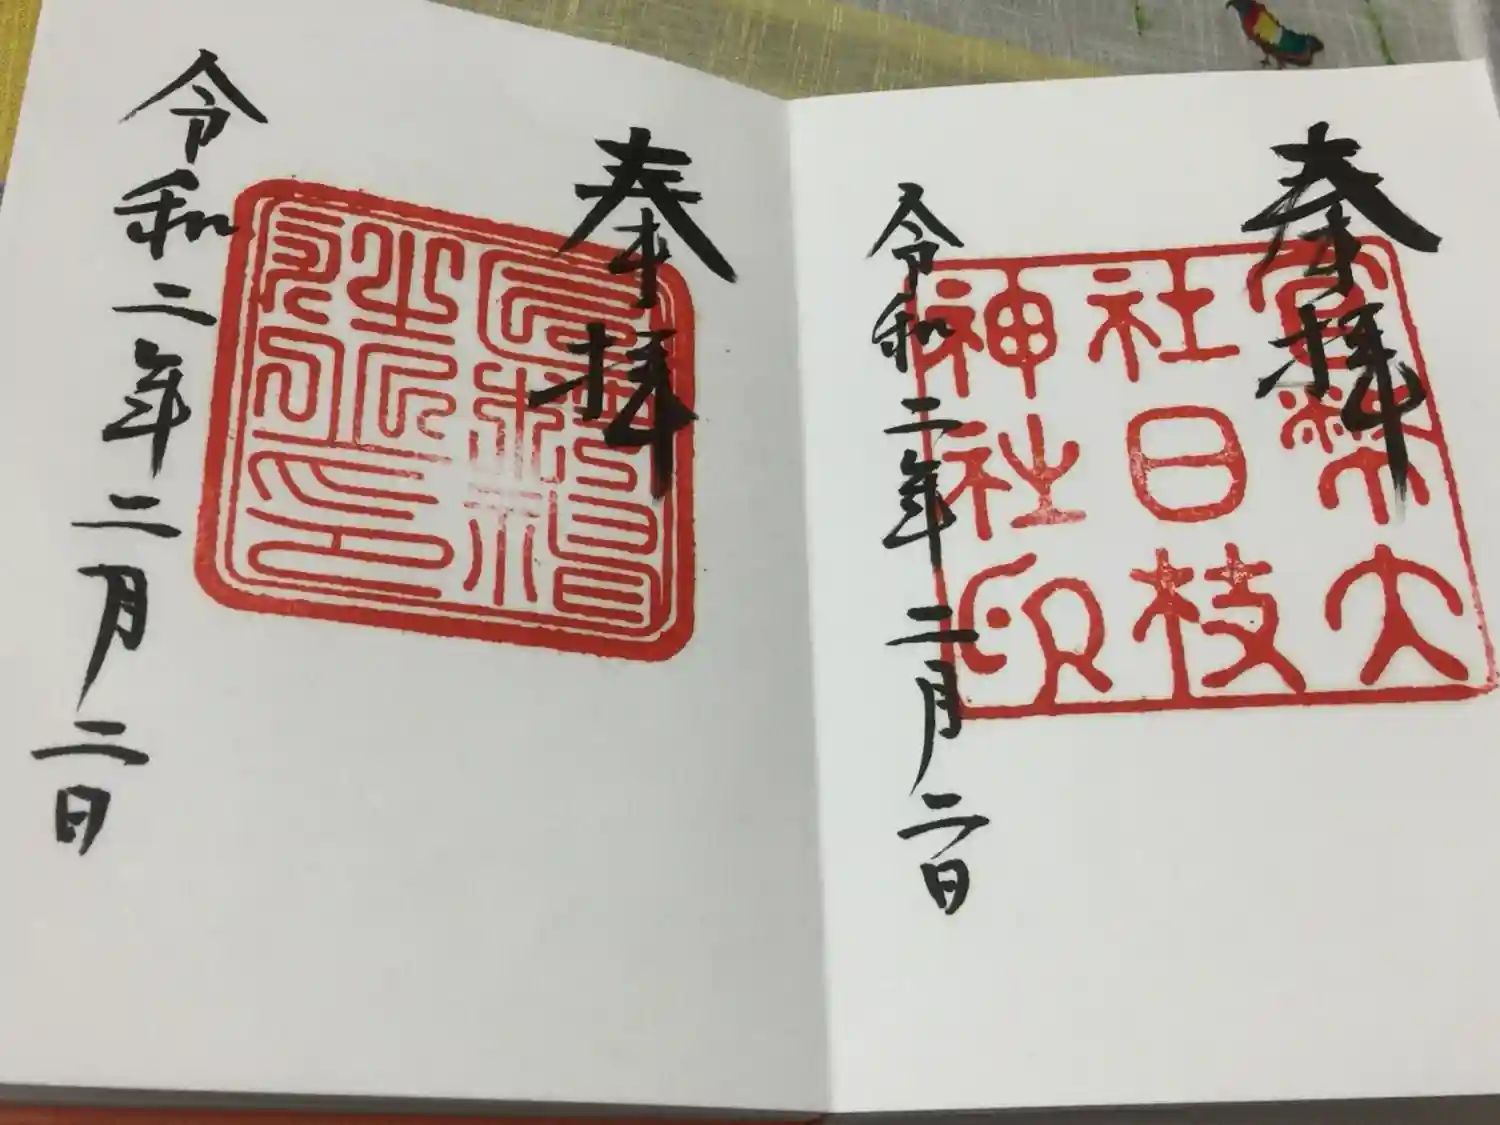 奉拝
官幣大
社日枝
神社印
令和二年二月二日
奉拝
令和二年二月二日